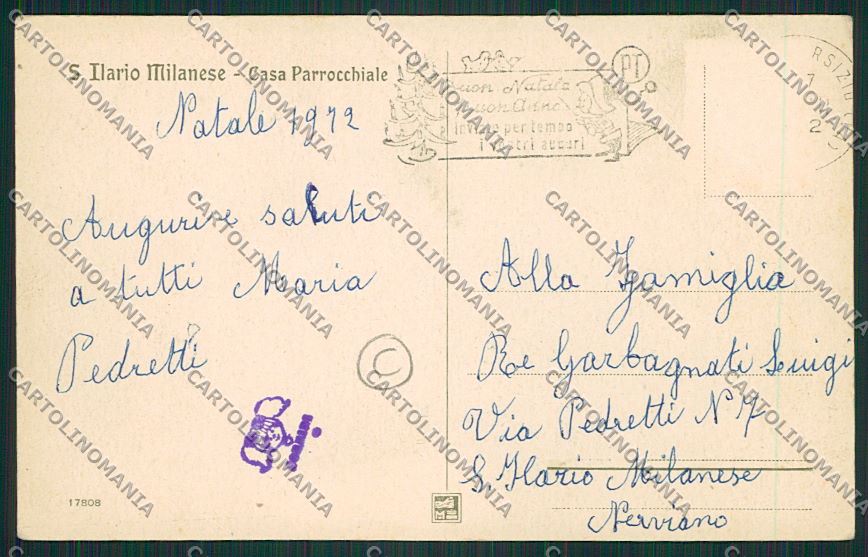 S. Ilario Milanese - Casa Parrocchiale
Natale 1972
Auguri e saluti
a tutti Maria
Pedretti
C
17808
Buon Natale
Buon Anno
Inviate per tempo
i vostri auguri
PT
Alla Famiglia
Re Garbagnati Luigi
Via Pedretti N 7
S. Ilario Milanese
Nerviano
CARTOLINOMANIA